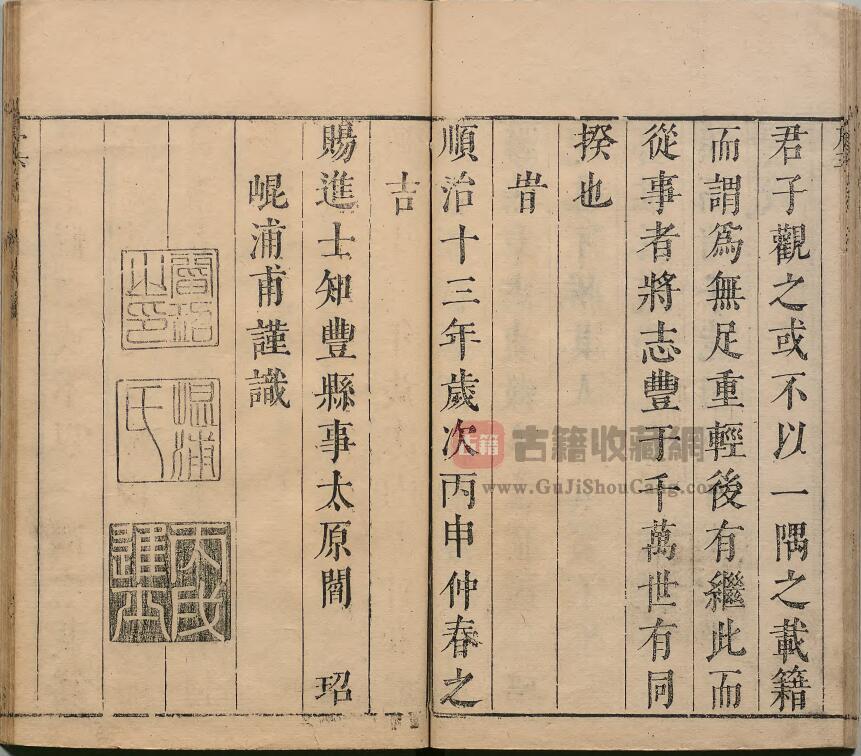 君子觀之或不以一隅之載籍
而謂爲無足重輕後有繼此而
從事者將志豐于千萬世有同
揆也
旹
順治十三年歲次丙申仲春之
吉
賜進士知豐縣事太原閻　玿
崐浦甫謹識
崐浦氏
丙戌進士
古籍
古籍收藏網
www.GuJiShouCang.com